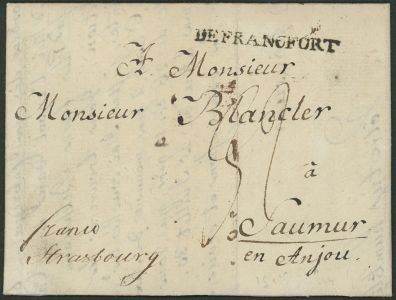 DE FRANCFORT
A Monsieur
Monsieur Blancler
à
Saumur
en Anjou.
franco
Strasbourg